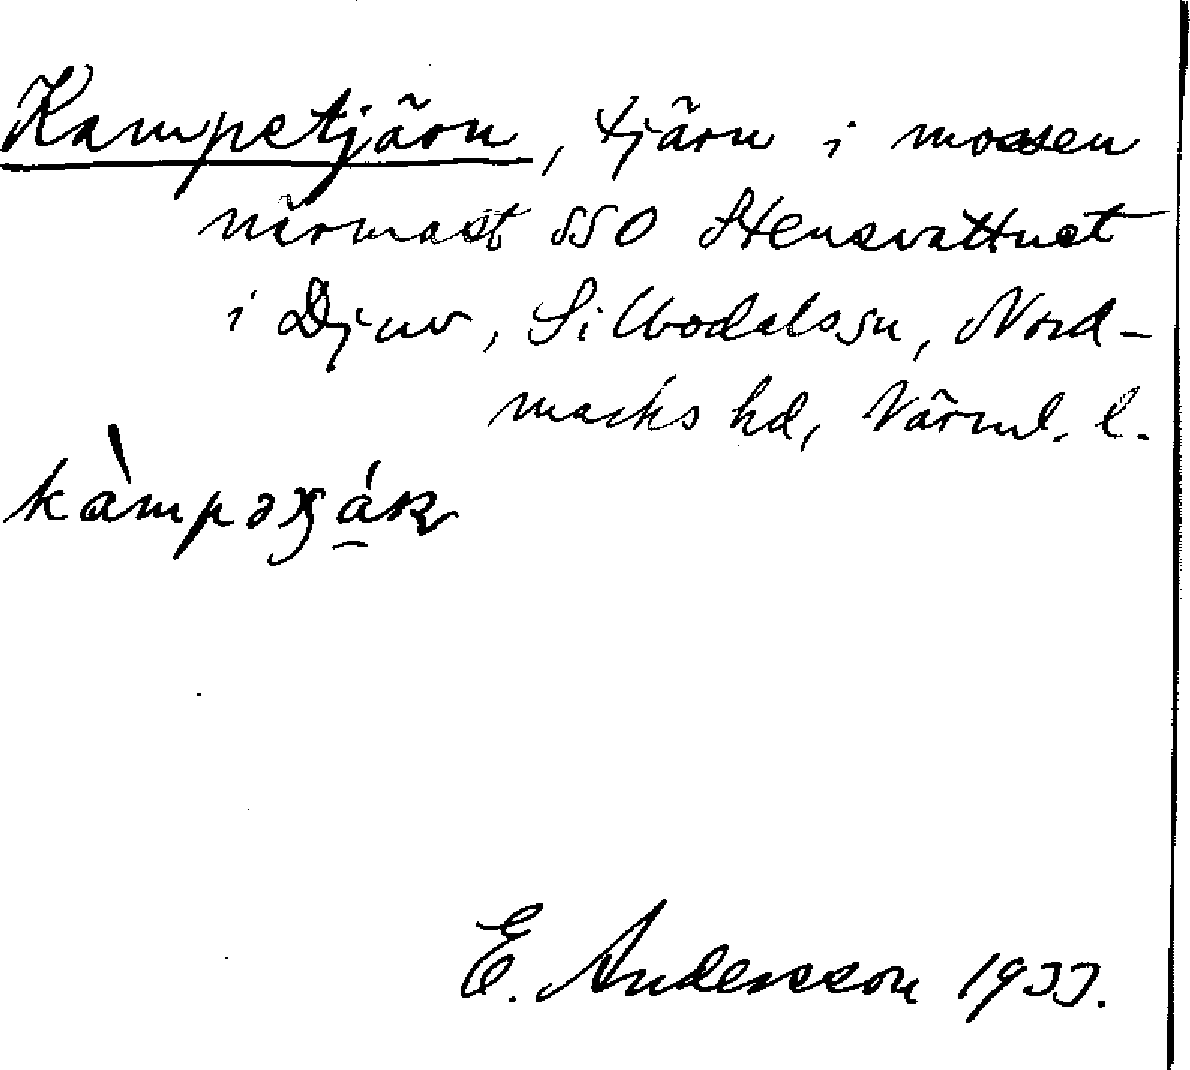 Kampetjärn, tjärn i mossen
närmast SSO Stensvattnet
i Djuv, Silbodals sn, Nord-
marks hd, Värml. l.
E. Andersson 1933.